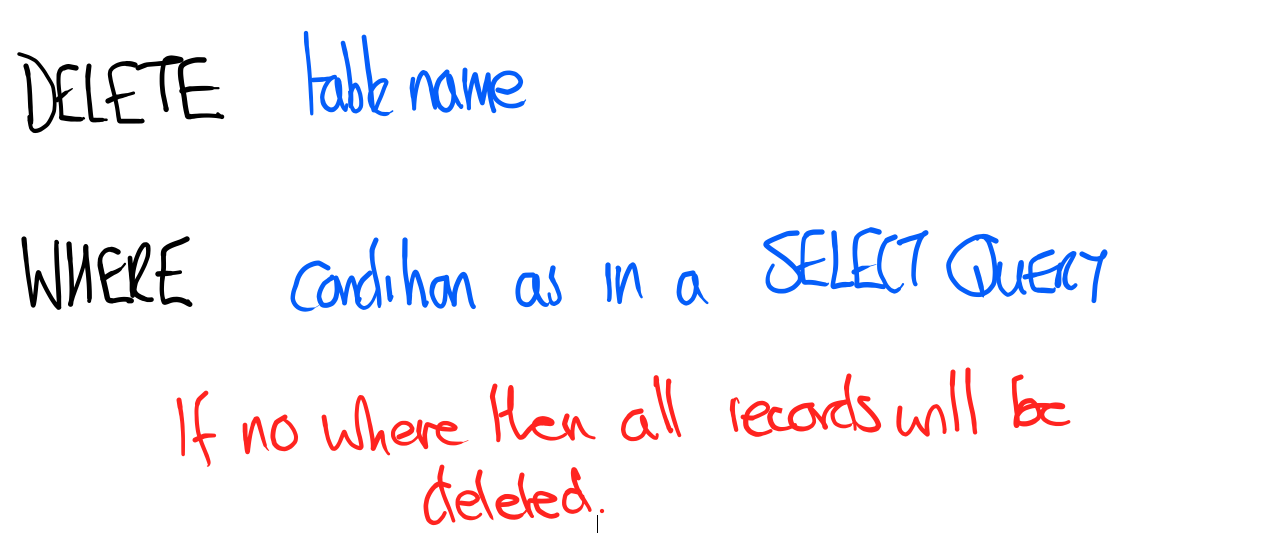 DELETE table name
WHERE condition as in a SELECT QUERY
If no where then all records will be
deleted.